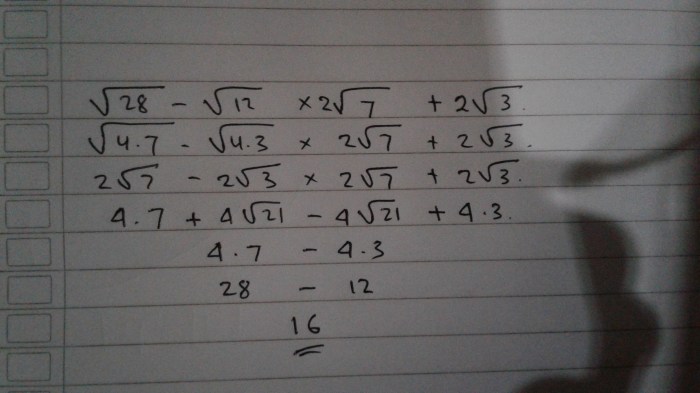 √28 - √12 × 2√7 + 2√3.
√4.7 - √4.3 × 2√7 + 2√3.
2√7 - 2√3 × 2√7 + 2√3.
4.7 + 4√21 - 4√21 + 4.3.
4.7 - 4.3
28 - 12
16